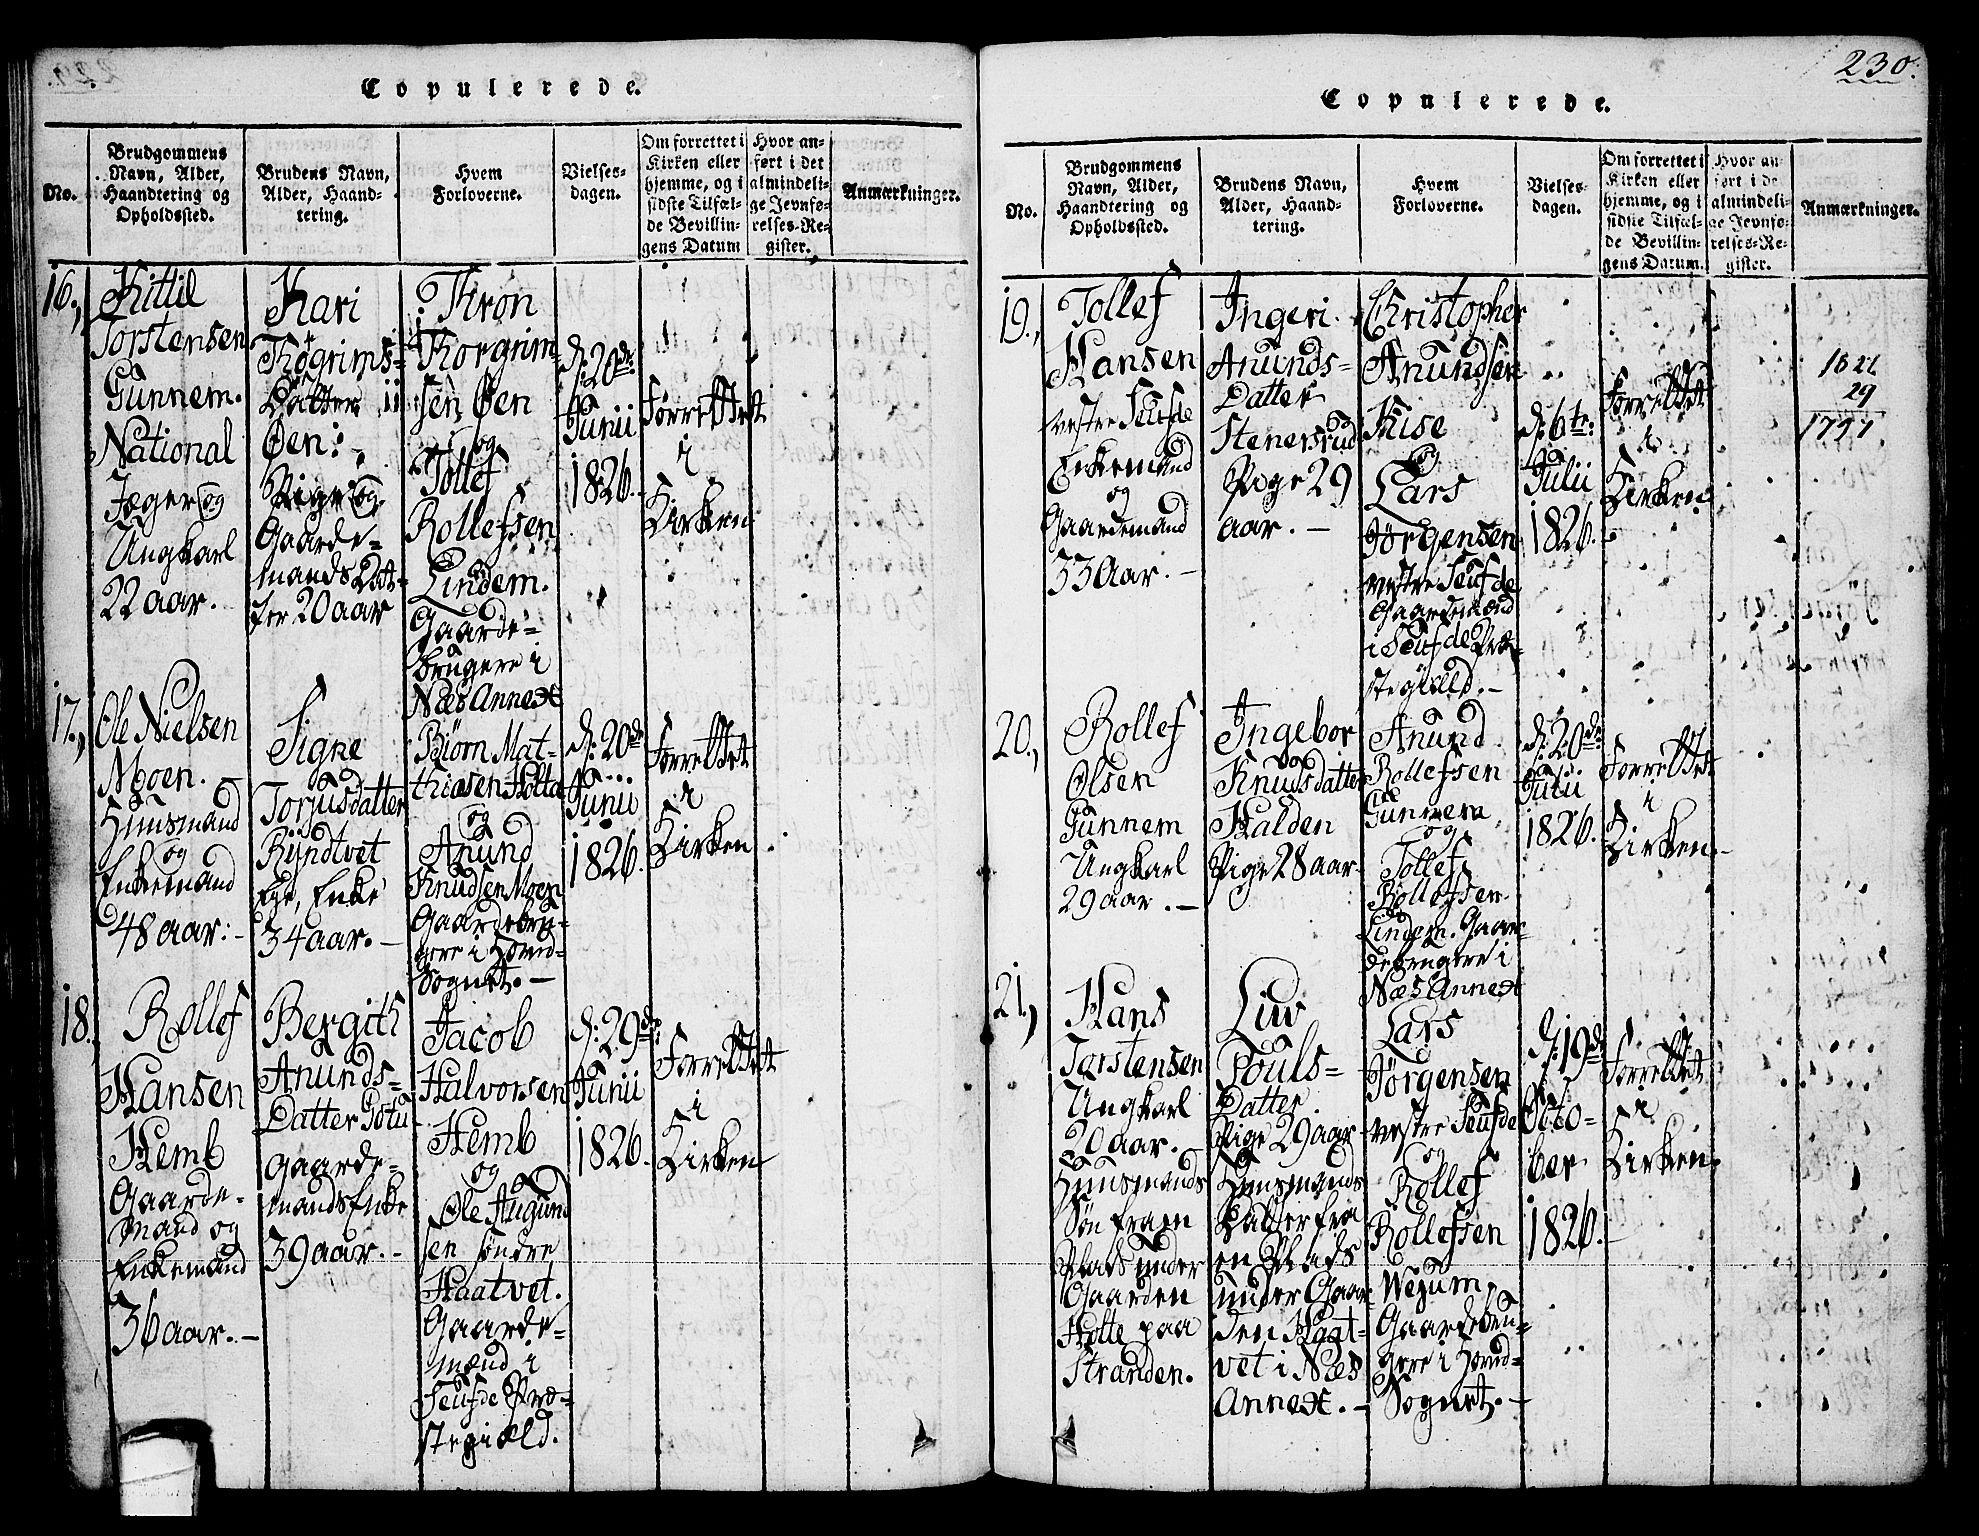 Copulerede.
No.
Brudgommens
Navn, Alder,
Haandtering og
Opholdssted.
Brudens Navn,
Alder, Haand-
tering.
Hvem
Forloverne.
Vielses-
dagen.
Om forrettet i
Kirken eller
hjemme, og i
sidste Tilfæl-
de Bevillin-
gens Datum
Hvor an-
ført i det
almindeli-
ge Jevnfø-
relses-Re-
gister.
Anmærkninger.
16.,
Kittil
Torstensen
Gunnem.
National
Jæger og
Ungkarl
22 aar.
Kari
Thogrims-
Datter
Øen.
Pige og
Gaarde-
mands Dat-
ter 20 aar
Thron
Thorgrim-
sen Øen
og
Tollef
Rollefsen
Lindem.
Gaarde-
brugere i
Næs Annex
d: 20de
Junii
1826.
Forrettet
i
Kirken
17.,
Ole Nielsen
Moen.
Huusmand
og
Enkemand
48 aar. -
Signe
Torjusdatter
Ryndtvet
Eje, Enke
34 aar. -
Biørn Mat-
thiasen Holta
og
Anund
Knudsen Moen
Gaardebru-
gere i Hoved-
Sognet. -
d: 20de
Junii
1826.
Forrettet
i
Kirken
18.
Rollef
Hansen
Hemb
Gaarde-
mand og
Enkemand
36 aar. -
Bergith
Anunds-
Datter
Gaarde-
mands Enke
39 aar. -
Jacob
Halvorsen
Hemb
og
Ole Augund
sen søndre
Haatvet.
Gaarde-
mænd i
Seufde Præ-
stegiæld.
d: 29de
Junii
1826.
Forrettet
i
Kirken
230.
Copulerede.
No.
Brudgommens
Navn, Alder,
Haandtering og
Opholdssted.
Brudens Navn,
Alder, Haand-
tering.
Hvem
Forloverne.
Vielses-
dagen.
Om forrettet i
Kirken eller
hjemme, og i
sidste Tilfæl-
de Bevillin-
gens Datum.
Hvor an-
ført i de
almindeli-
ge Jevnfø-
relses-Re-
gister.
Anmærkninger.
19.,
Tollef
Hansen
vestre Seufde
Enkemand
og
Gaardemand
33 Aar. -
Ingeri
Anunds-
Datter
Stenersrud
Pige 29
aar. -
Christopher
Anundsen
Kise
og
Lars
Jørgensen
vestre Seufde
Gaardemænd
i Seufde Præ-
stegiæld. -
d: 6te:
Julii
1826.
Forrettet
i
Kirken
29
1797.
20.,
Rollef
Olsen
Gunnem
Ungkarl
29 aar. -
Ingebor
Knudsdatter
Halden
Pige 28 aar.
Anund
Rollefsen
Gunnem,
og
Tollef
Rollefsen
Lindem. Gaar-
debrugere i
Næs Annex
d: 20de
Julii
1826.
Forrettet
i
Kirken.
21.,
Hans
Torstensen
Ungkarl
20 aar. -
Huusmands
Søn fra en
Plads under
Gaarden
Holte paa
Stranden.
Liv
Pouls-
Datter.
Pige 29 aar
Huusmands
Datter fra
en Plads
under Gaar-
den Haat-
vet i Næs
Annex. -
Lars
Jørgensen
vestre Seufde
og
Rollef
Rollefsen
Wegum,
Gaardebru-
gere i Hoved-
Sognet. -
d: 19de
Octo-
ber
1826.
Forrettet
i
Kirken.